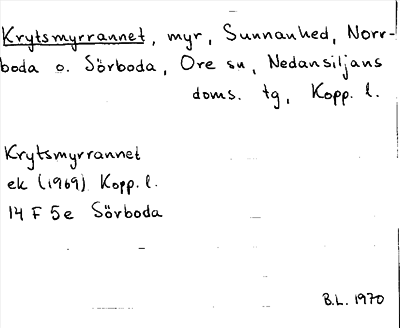 Krytsmyrrannet, myr, Sunnanhed, Norr-
boda o. Sörboda, Ore sn, Nedansiljans
doms. tg, Kopp. l.
Krytsmyrrannet
ek (1969) Kopp. l.
14 F 5e Sörboda
B.L. 1970